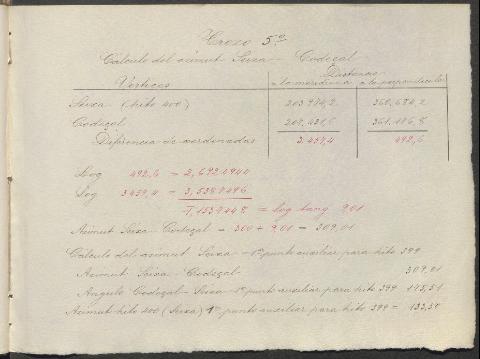 Trozo 5º
Cálculo del azimut Seixa - Codeçal
Distancias
Vértices a la meridiana a la perpendicular
Seixa (hito 400) 203.974,2 360.684,2
Codeçal
Diferencia de coordenadas 3.459,4 492,6
Log 492,6 = 2,6924944
Log 3459,4 =
= log tang 9,01
Azimut Seixa - Codeçal = 300 + 9,01 = 309,01
Cálculo del azimut Seixa - 1er punto auxiliar para hito 399
Azimut Seixa - Codeçal 309,01
Angulo Codeçal - Seixa - 1er punto auxiliar para hito 399
Azimut hito 400 (Seixa) 1er punto auxiliar para hito 399 =